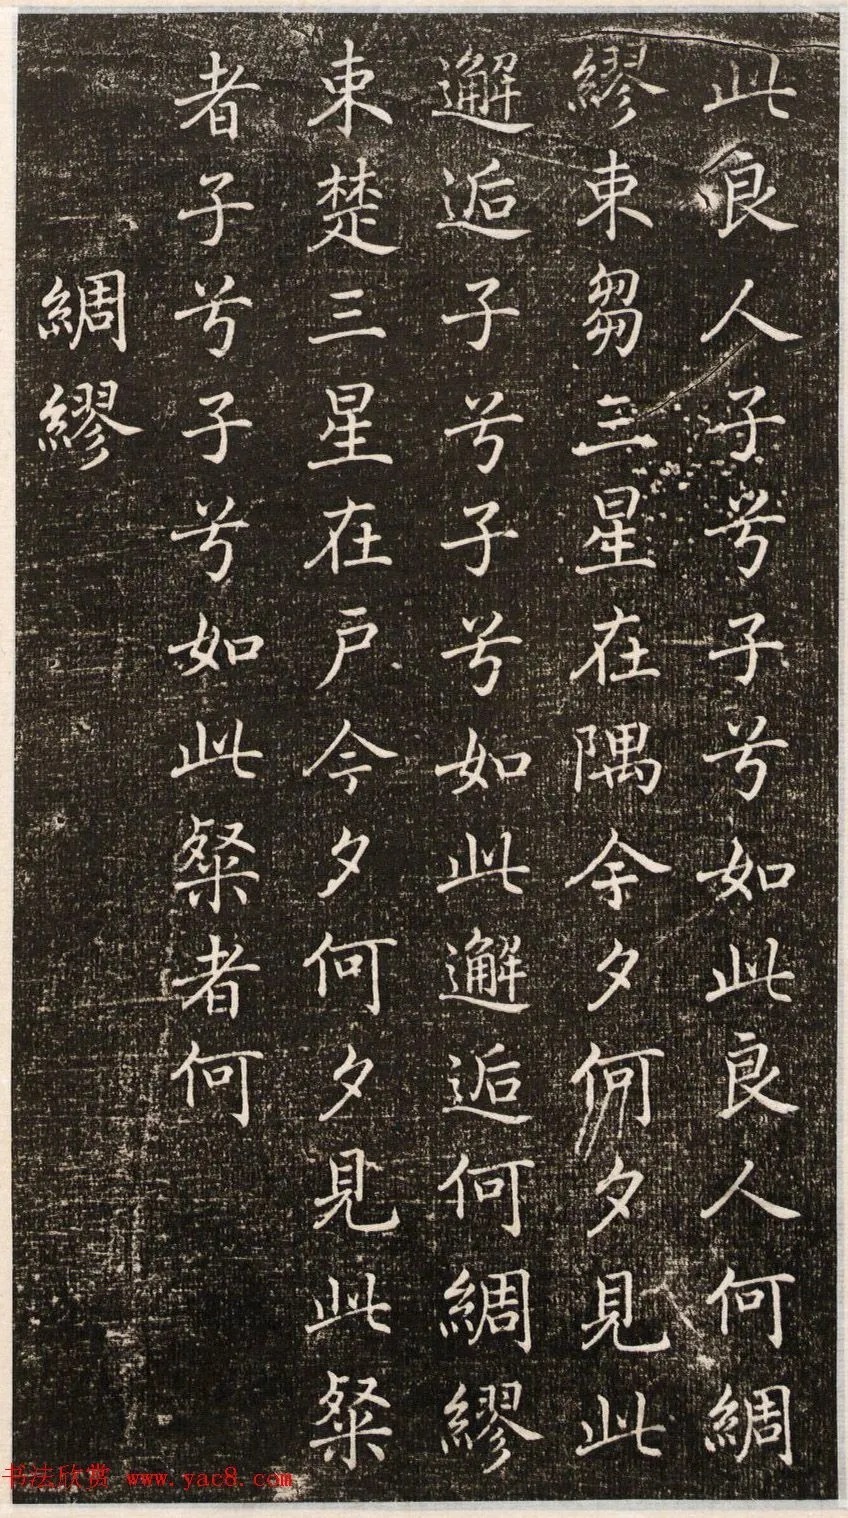 此良人子兮子兮如此良人何綢
繆束芻三星在隅今夕何夕見此
邂逅子兮子兮如此邂逅何綢繆
束楚三星在戶今夕何夕見此粲
者子兮子兮如此粲者何
綢繆
书法欣赏 www.yac8.com